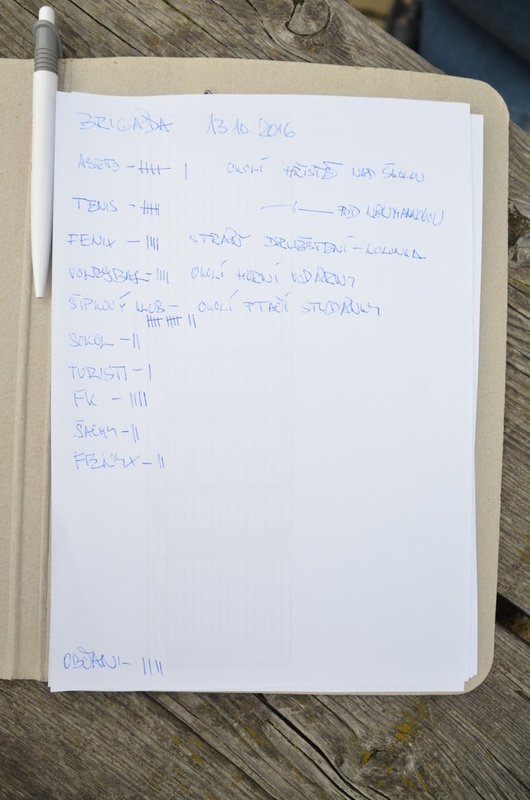 BRIGÁDA 13 10 2016
- |||| | OKOLÍ HŘIŠTĚ NAD ŠKOLOU
TENIS - |||| —||— POD
FENIX - |||| STRÁŇ DRUŽSTEVNÍ -
VOLEJBAL - |||| OKOLÍ HORNÍ VODÁRNY
ŠIPKOVÝ KLUB - OKOLÍ PTAČÍ STUDÁNKY
|||| |||| ||
SOKOL - ||
TURISTI - |
FK - ||||
ŠACHY - ||
FENYX - ||
OBČANI - ||||